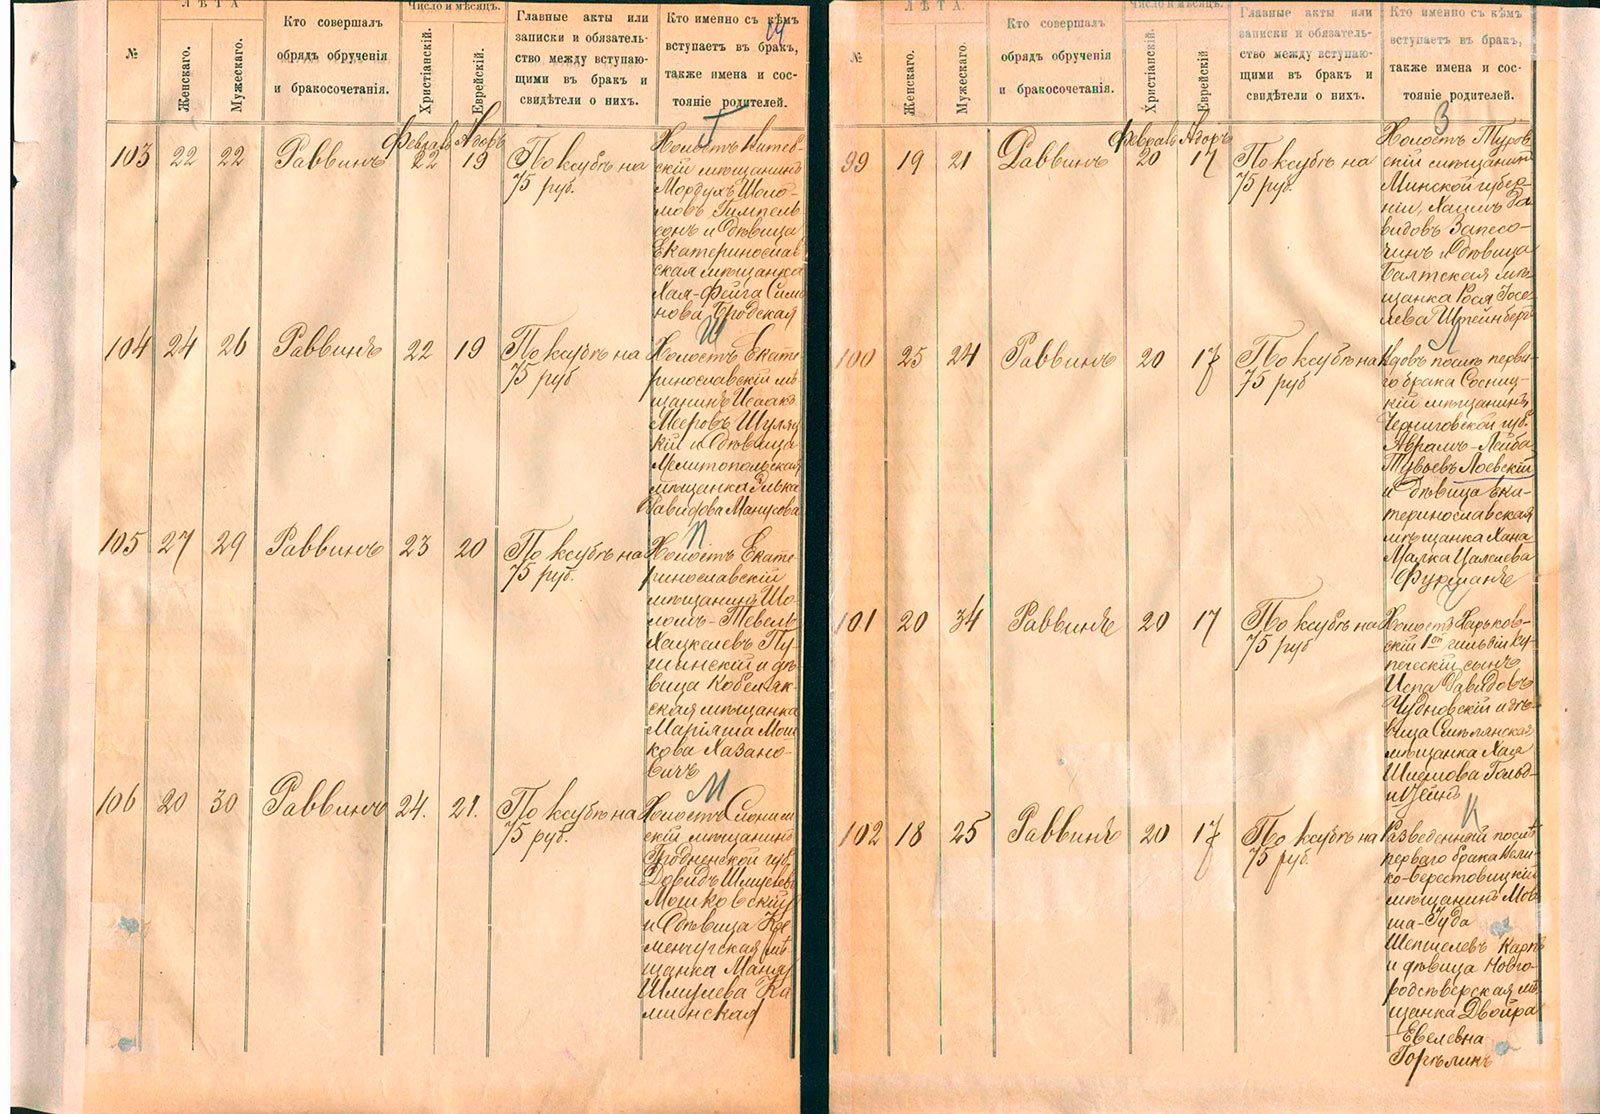 ЛѢТА
Число и мѣсяцъ.
№
Женскаго.
Мужескаго.
Кто совершалъ
обрядъ обрученія
и бракосочетанія.
Христіанскій.
Еврейскій
Главные акты или
записки и обязатель-
ство между вступаю-
щими въ бракъ и
свидѣтели о нихъ.
Кто именно съ кѣмъ
вступаетъ въ бракъ,
также имена и сос-
тояніе родителей.
Февраль Адоръ
103 22 22 Раввинъ 22 19 По ксубѣ на
75 руб.
Холостъ Витеб-
скій мѣщанинъ
Мордухъ Шоло-
мовъ Гимпель-
сонъ и дѣвица
Екатеринослав
ская мѣщанка
Хая-Фейга Симо
нова Бродская
Ш
104 24 26 Раввинъ 22 19 По ксубѣ на
75 руб
Холостъ Екате-
ринославскій мѣ-
щанинъ Исаакъ
Мееровъ Шуляц
кій и дѣвица
Мелитопольская
мѣщанка Элька
Давидова Манусова
П
105 27 29 Раввинъ 23 20 По ксубѣ на
75 руб.
Холостъ Екате-
ринославскій
мѣщанинъ Шо-
ломъ-Тевель
Хацкелевъ Пу-
шинскій и дѣ-
вица Кобеляк-
ская мѣщанка
Маріяша Мош
кова Хазано-
вичъ
М
106 20 30 Раввинъ 24. 21. По ксубѣ на
75 руб.
Холостъ Слоним
скій мѣщанинъ
Гродненской губ.
Довидъ Шмуелевъ
Мошковскій
и дѣвица Кре
менчугская мѣ
щанка Маня
Шмулева Ка
минская
ЛѢТА
Число и мѣсяцъ.
№
Женскаго.
Мужескаго.
Кто совершалъ
обрядъ обрученія
и бракосочетанія.
Христіанскій.
Еврейскій
Главные акты или
записки и обязатель-
ство между вступаю-
щими въ бракъ и
свидѣтели о нихъ.
Кто именно съ кѣмъ
вступаетъ въ бракъ,
также имена и сос-
тояніе родителей.
З
Февраль Адоръ
99 19 21 Раввинъ 20 17 По ксубѣ на
75 руб.
Холостъ Туров
скій мѣщанинъ
Минской губер-
ніи, Хаимъ Да
видовъ Запесо-
чинъ и дѣвица
Балтская мѣ-
щанка Рося Іосе-
лева Штейнбергъ
Л
100 25 24 Раввинъ 20 17 По ксубѣ на
75 руб
Вдовъ послѣ перва-
го брака Сосниц-
кій мѣщанинъ
Черниговской губ.
Аврамъ-Лейба
Тувьевъ Лоевскій
и дѣвица Ека-
теринославская
мѣщанка Хана
Малка Цалелева
Фурманъ
Ч
101 20 34 Раввинъ 20 17 По ксубѣ на
75 руб
Холостъ Харьков-
скій 1ой гильдіи ку-
печескій сынъ
Испа Давидовъ
Чудновскій и дѣ-
вица Смѣлянская
мѣщанка Хая
Шмулова Гольд-
штейнъ
К
102 18 25 Раввинъ 20 17 По ксубѣ на
75 руб.
Разведенный послѣ
перваго брака Вели-
ко-верестовицкій
мѣщанинъ Мов
ша-Іуда
Шепшелевъ Карпъ
и дѣвица Новго-
родсѣверская мѣ
щанка Двойра
Евелевна
Горѣликъ